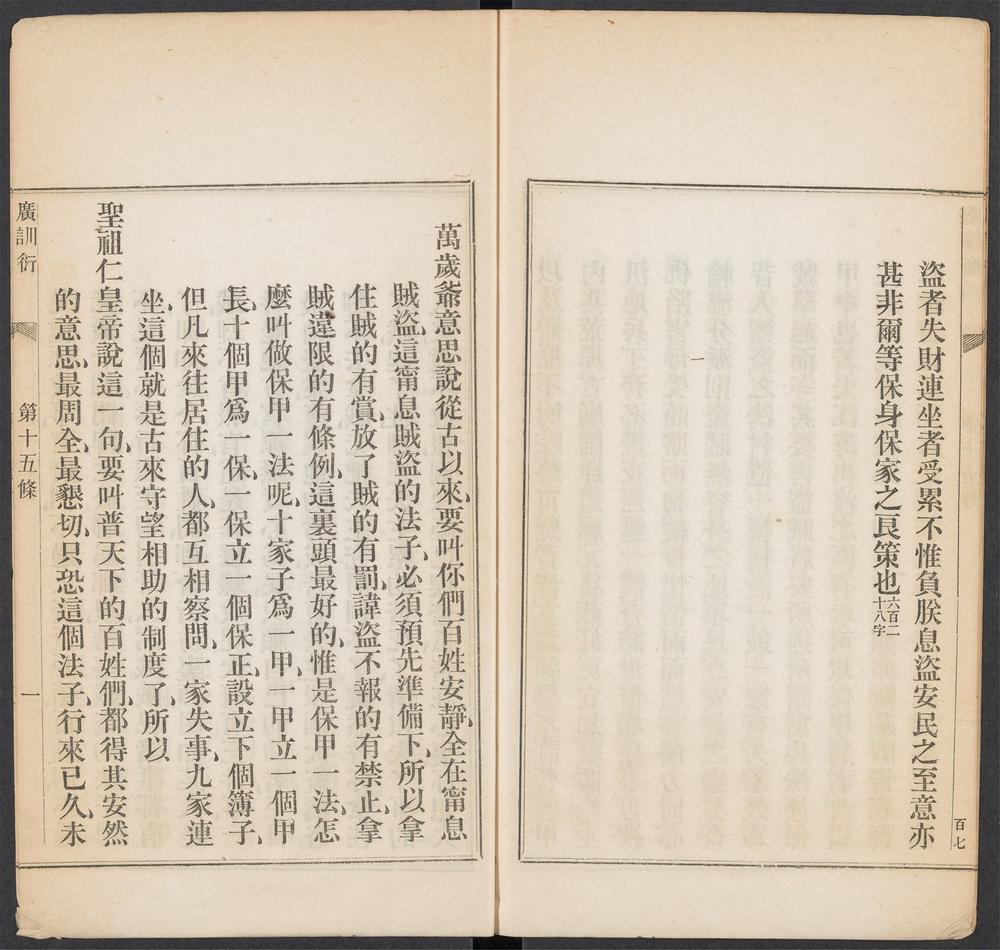 盜者失財連坐者受累不惟負朕息盜安民之至意亦
甚非爾等保身保家之良策也六百二十八字
百七
萬歲爺意思說從古以來、要叫你們百姓安靜、全在甯息
賊盜、這甯息賊盜的法子、必須預先準備下、所以拿
住賊的有賞、放了賊的有罰、諱盜不報的有禁止、拿
賊違限的有條例、這裏頭最好的、惟是保甲一法、怎
麼叫做保甲一法呢、十家子爲一甲、一甲立一個甲
長、十個甲爲一保、一保立一個保正、設立下個簿子、
但凡來往居住的人、都互相察問、一家失事、九家連
坐、這個就是古來守望相助的制度了、所以
聖祖仁皇帝說這一句、要叫普天下的百姓們、都得其安然
的意思、最周全、最懇切、只恐這個法子、行來已久、未
廣訓衍
第十五條
一